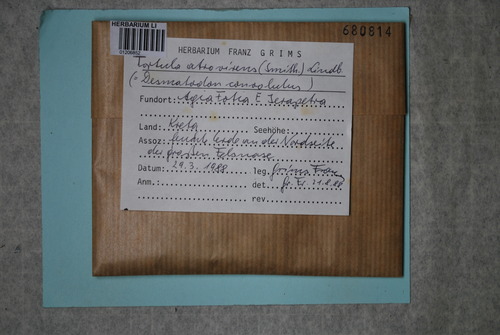 HERBARIUM LI
680814
HERBARIUM FRANZ GRIMS
Tortula atrovirens (Smith.) Lindb
(= Desmatodon convolutus)
Fundort: Agia Fotia E Ierapetra
Land: Kreta Seehöhe:
Assoz: feuchte Erde an der Nordseite
der grossen Felsnase
Datum: 29.3.1988 leg. Grims Franz
Anm.: det. Gr. Fr. 21.8.88
rev.